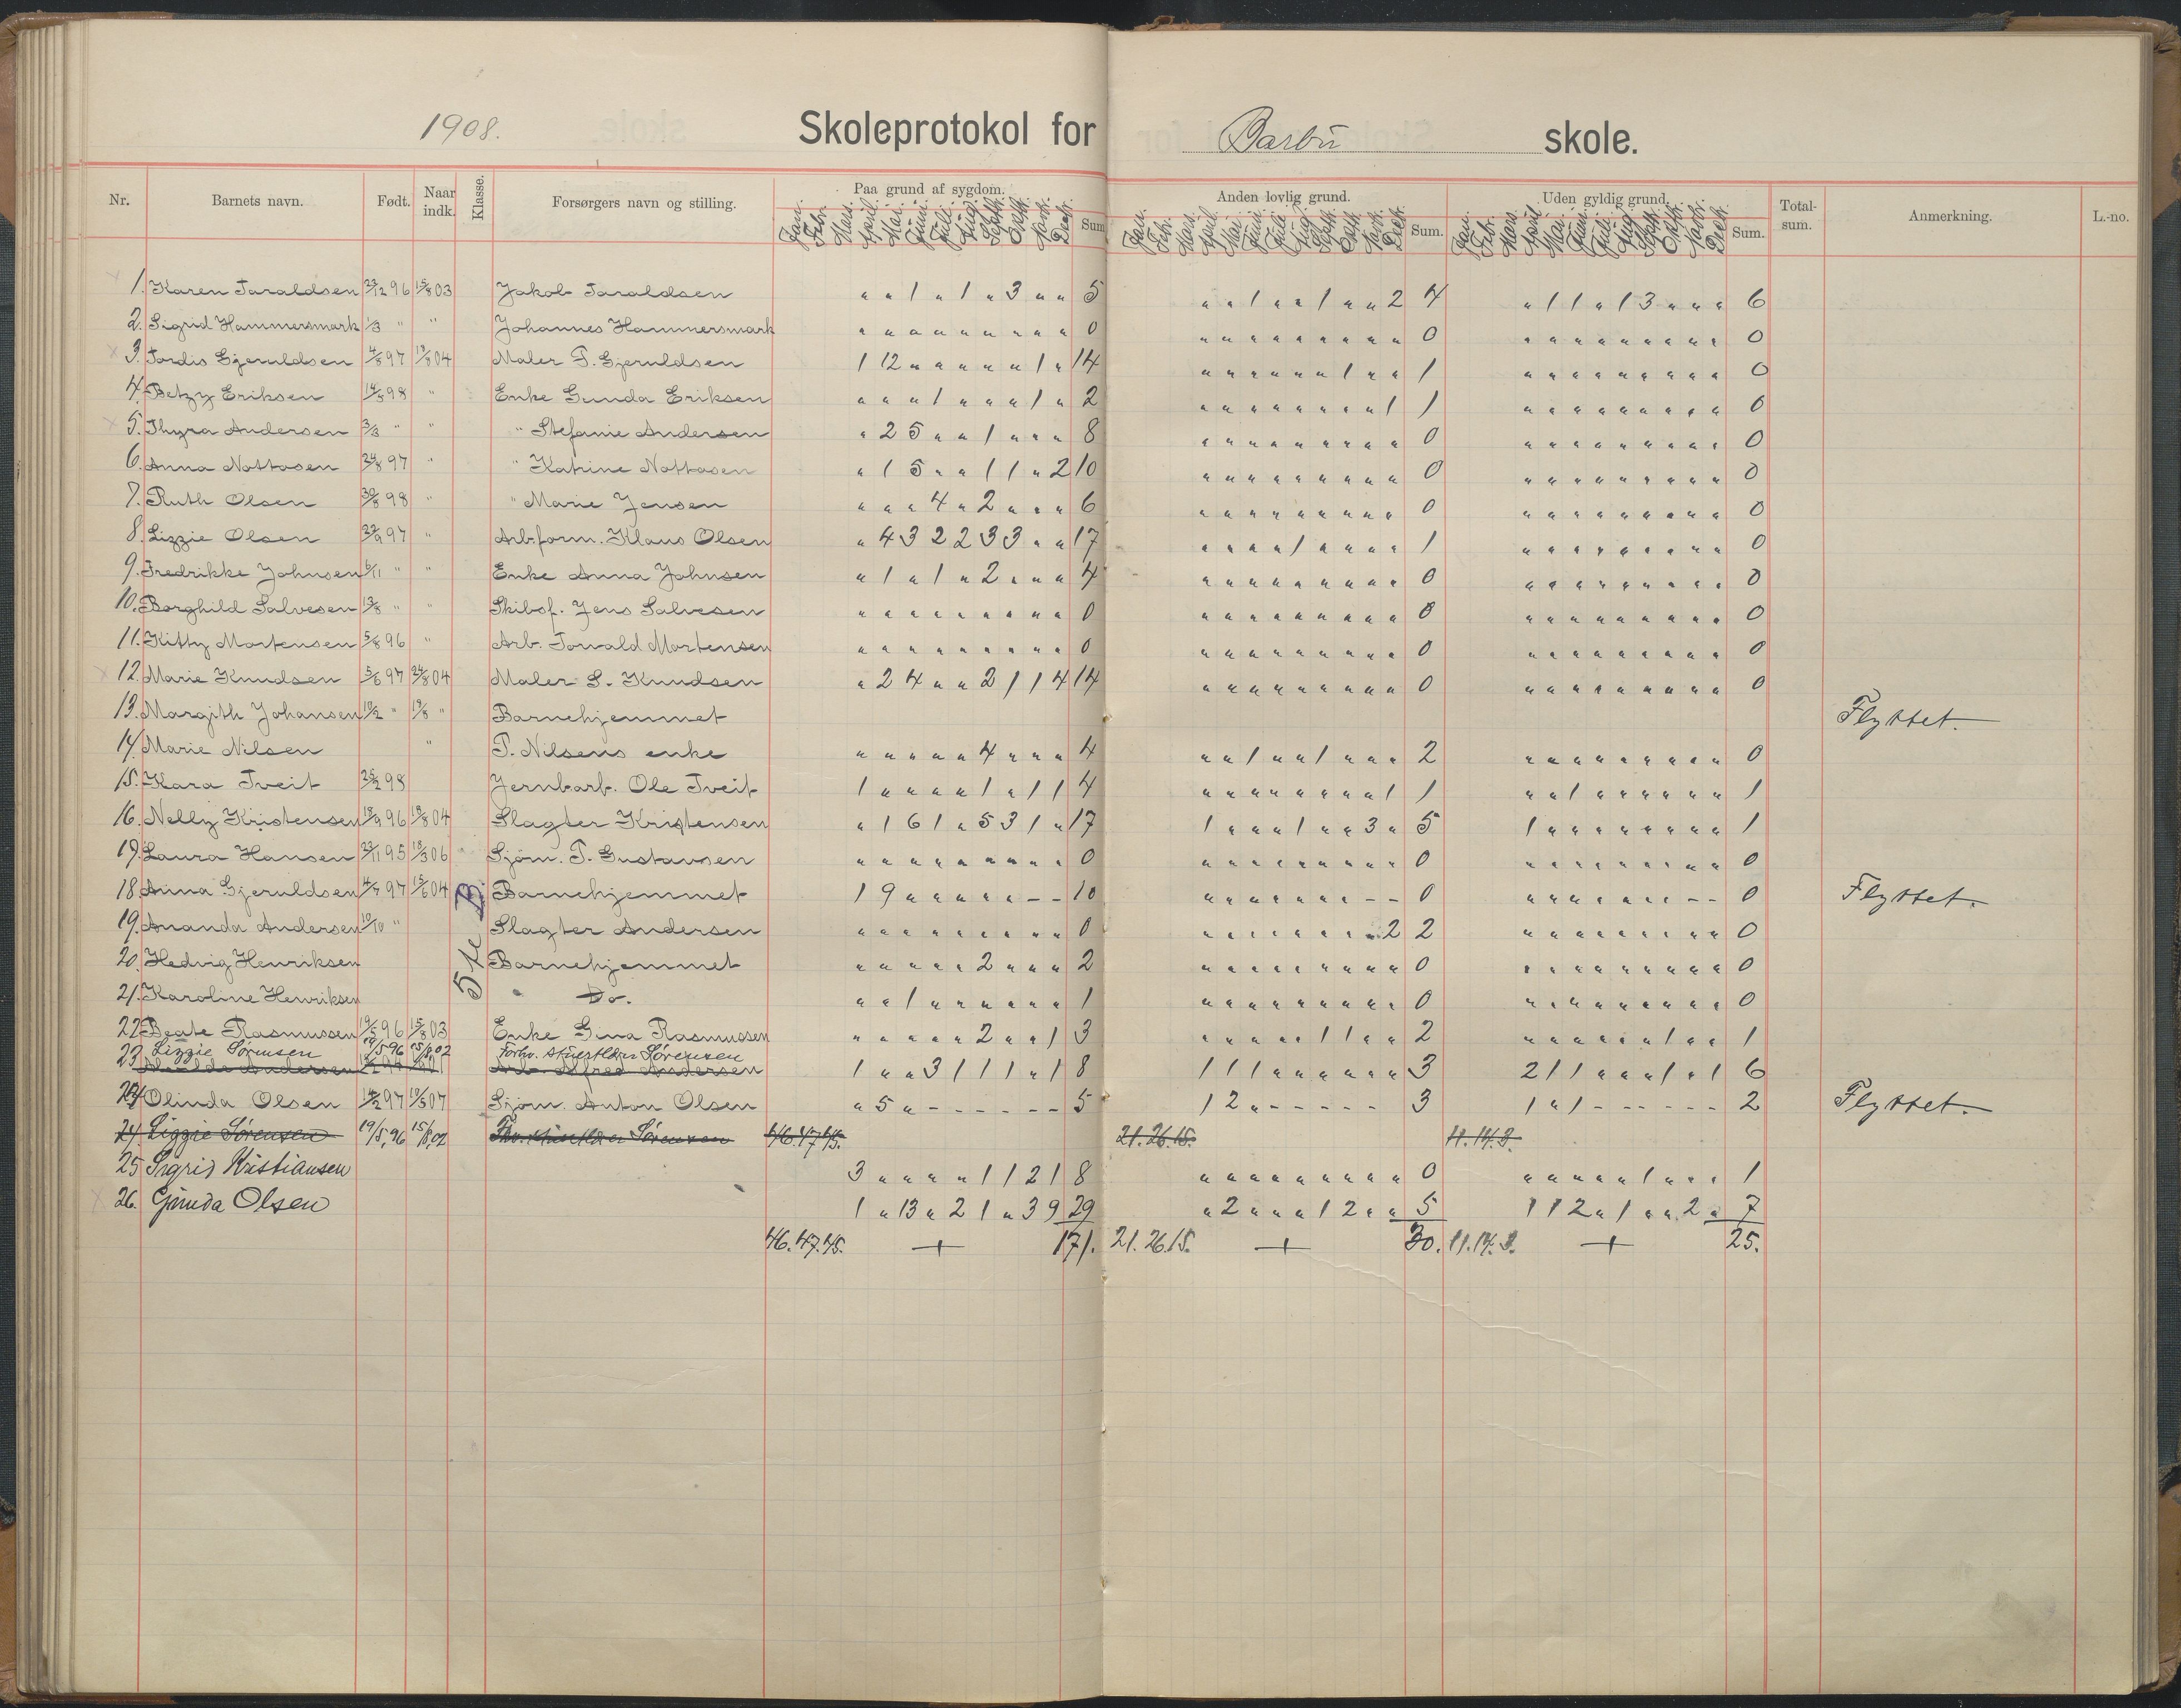 1908. Skoleprotokol for Barbu skole.
Nr. Barnets navn. Født. Naar indk. Klasse. Forsørgers navn og stilling. Paa grund af sygdom. Sum Anden lovlig grund. Sum. Uden gyldig grund. Sum. Total-sum. Anmerkning. L.-no.
Jan. Febr. Mars. April. Mai. Juni. Juli. Aug. Septb. Oktb. Novb. Decb. Jan. Febr. Mars. April. Mai. Juni. Juli. Aug. Septb. Oktb. Novb. Decb. Jan. Febr. Mars. April. Mai. Juni. Juli. Aug. Septb. Oktb. Novb. Decb.
1. Karen Taraldsen 23/12 96 15/8 03 Jakob Taraldsen " " 1 " 1 " 3 " " 5 " " 1 " " 1 " " 2 4 " 1 1 " 1 3 " " " 6
2. Sigrid Hammersmark 1/3 " " Johannes Hammersmark " " " " " " " " " 0 " " " " " " " " " 0 " " " " " " " " " 0
3. Tordis Gjeruldsen 4/8 97 19/8 04 Maler T. Gjeruldsen 1 12 " " " " " 1 " 14 " " " " " " 1 " " 1 " " " " " " " " " 0
4. Betzy Eriksen 14/3 98 " Enke Gunda Eriksen " " " 1 " " " 1 " 2 " " " " " " " " 1 1 " " " " " " " " " 0
5. Thyra Andersen 3/3 " " " Stefanie Andersen " 2 5 " " 1 " " " 8 " " " " " " " " " 0 " " " " " " " " " 0
6. Anna Nottosen 24/8 97 " " Katrine Nottosen " 1 5 " " 1 1 " 2 10 " " " " " " " " " 0 " " " " " " " " " 0
7. Ruth Olsen 30/8 98 " " Marie Jensen " " " 4 " 2 " " " 6 " " " " " " " " " 0 " " " " " " " " " 0
8. Lizzie Olsen 22/9 97 " Arb.form. Klaus Olsen " 4 3 2 2 3 3 " " 17 " " " " 1 " " " " 1 " " " " " " " " " 0
9. Fredrikke Johnsen 6/11 " " Enke Anna Johnsen " 1 " 1 " 2 " " " 4 " " " " " " " " " 0 " " " " " " " " " 0
10. Borghild Salvesen 13/8 " " Skibsf. Jens Salvesen " " " " " " " " " 0 " " " " " " " " " 0 " " " " " " " " " 0
11. Kitty Mortensen 5/8 96 " Arb. Torvald Mortensen " " " " " " " " " 0 " " " " " " " " " 0 " " " " " " " " " 0
12. Marie Knudsen 5/6 97 24/8 04 Maler S. Knudsen " 2 4 " " 2 1 1 4 14 " " " " " " " " " 0 " " " " " " " " " 0
13. Margith Johansen 10/2 " 19/8 " Barnehjemmet Flyttet.
14. Marie Nilsen " T. Nilsens enke " " " " " 4 " " " 4 " " 1 " " 1 " " " 2 " " " " " " " " " 0
15. Klara Tveit 25/2 98 Jernbarb. Ole Tveit 1 " " " " 1 " 1 1 4 " " " " " " " " 1 1 " " 1 " " " " " " 1
16. Nelly Kristensen 18/9 96 19/8 04 Slagter Kristensen " 1 6 1 " 5 3 1 " 17 1 " " " 1 " " 3 " 5 1 " " " " " " " " 1
17. Laura Hansen 23/11 95 18/3 06 " Sjøm. T. Gustavsen " " " " " " " " " 0 " " " " " " " " " 0 " " " " " " " " " 0
18. Anna Gjeruldsen 4/7 97 15/6 04 Barnehjemmet 1 9 " " " " " - - 10 " " " " " " " - - 0 " " " " " " " - - 0 Flyttet.
19. Ananda Andersen 10/10 " Slagter Andersen " " " " " " " " " 0 " " " " " " " " 2 2 " " " " " " " " " 0
5te B.
20. Hedvig Henriksen Barnehjemmet " " " " " 2 " " " 2 " " " " " " " " " 0 " " " " " " " " " 0
21. Karoline Henriksen " Do. " " 1 " " " " " " 1 " " " " " " " " " 0 " " " " " " " " " 0
22 Beate Rasmussen 19/5 96 15/8 03 Enke Gina Rasmussen " " " " " 2 " " 1 3 " " " " " 1 1 " " 2 " " " " " " 1 " " 1
Lizzie Sørensen 19/5 96 15/8 02 Forhv. stuert Sørensen
23 Andersen Arb. Alfred Andersen 1 " " 3 1 1 1 " 1 8 1 1 1 " " " " " " 3 2 1 1 " " " 1 " 1 6
24 Olinda Olsen 14/2 97 19/3 07 Sjøm. Anton Olsen " 5 " - - - - - - 5 1 2 " - - - - - 3 1 " 1 - - - - - - 2 Flyttet.
24. Lizzie Sørensen 19/5 96 15/8 02 Sørensen 46. 47. 45. 21. 26. 15. 11. 14. 3.
25 Sigrid Kristiansen 3 " " " " 1 1 2 1 8 " " " " " " " " " 0 " " " " " 1 " " " 1
26. Gunda Olsen 1 " 13 " 2 1 " 3 9 29 " 2 " " " 1 2 " " 5 1 1 2 " 1 " " 2 " 7
46. 47. 45. + 171. 21. 26. 15. + 30. 11. 14. 3. + 25.